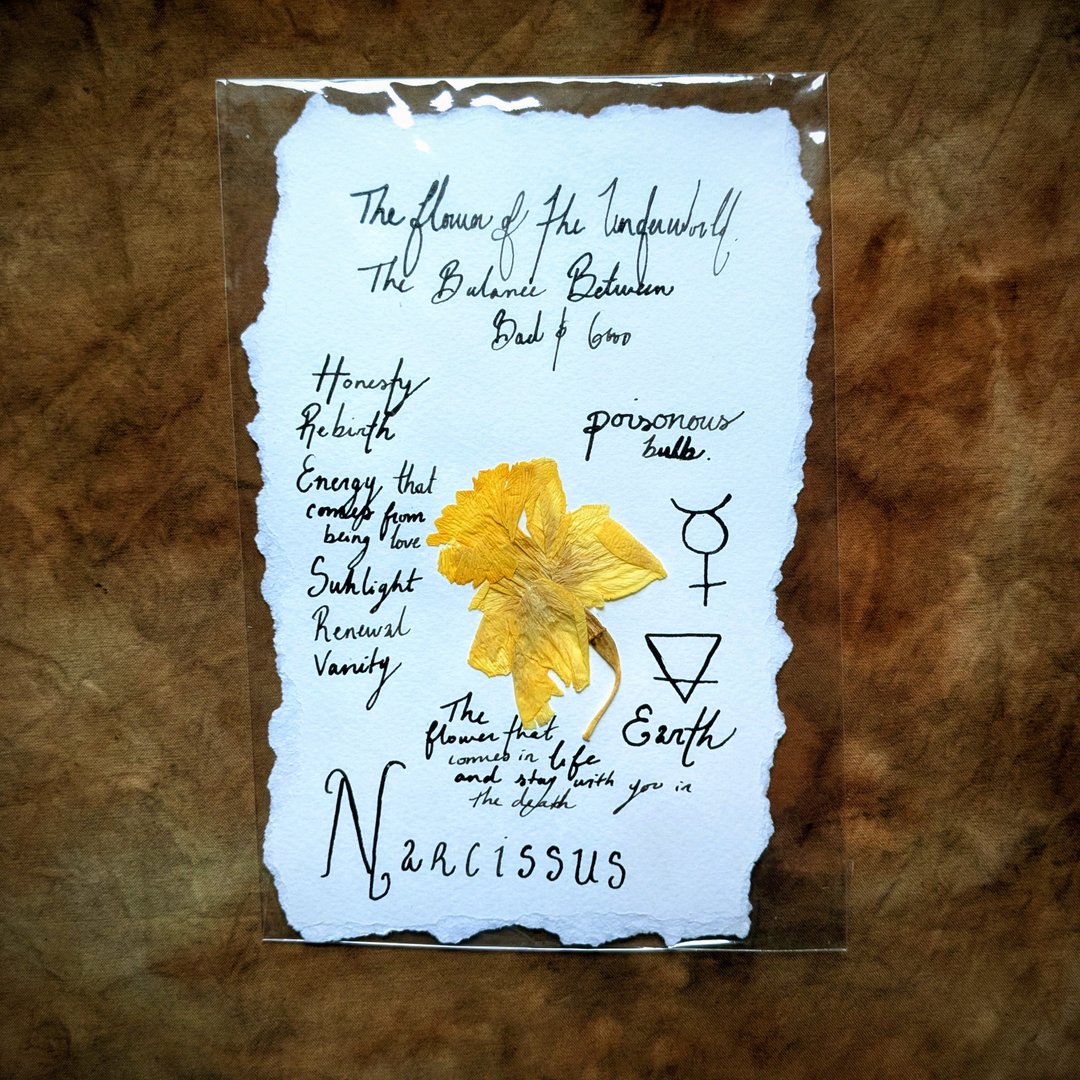 The flower of the Underworld.
The Balance Between
Bad & Good
Honesty
Rebirth
Energy that
comes from
being love
Sunlight
Renewal
Vanity
poisonous
bulb.
Earth
The
flower that
comes in life
and stay with you in
the death
Narcissus